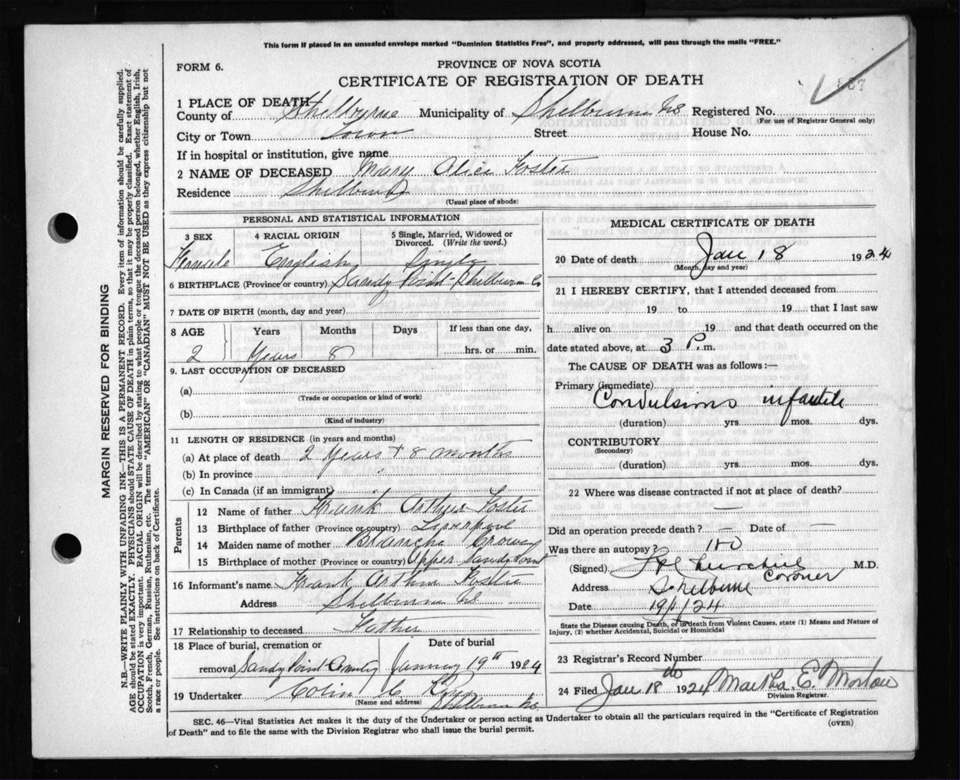 This form if placed in an unsealed envelope marked "Dominion Statistics Free", and properly addressed, will pass through the mails "FREE."
FORM 6.
PROVINCE OF NOVA SCOTIA
CERTIFICATE OF REGISTRATION OF DEATH
1 PLACE OF DEATH
County of Shelburne Municipality of Shelburne NS Registered No.
(For use of Registrar General only)
City or Town Town Street House No.
If in hospital or institution, give name
2 NAME OF DECEASED Mary Alice Foster
Residence Shelburne
(Usual place of abode)
MARGIN RESERVED FOR BINDING
N.B.—WRITE PLAINLY WITH UNFADING INK—THIS IS A PERMANENT RECORD. Every item of information should be carefully supplied.
AGE should be stated EXACTLY. PHYSICIANS should STATE CAUSE OF DEATH in plain terms, so that it may be properly classified. Exact statement of
OCCUPATION is very important. RACIAL ORIGIN will be described by stating to what people or tongue the deceased person belonged, whether English, Irish,
Scotch, French, German, Russian, Ruthenian, etc. The terms "AMERICAN" or "CANADIAN" MUST NOT BE USED as they express citizenship but not
a race or people. See instructions on back of Certificate.
PERSONAL AND STATISTICAL INFORMATION
3 SEX 4 RACIAL ORIGIN 5 Single, Married, Widowed or
Divorced. (Write the word.)
Female English Single
6 BIRTHPLACE (Province or country) Sandy Point-Shelburne Co
7 DATE OF BIRTH (month, day and year)
8 AGE Years Months Days If less than one day,
2 Years 8 hrs. or min.
9. LAST OCCUPATION OF DECEASED
(a)
(Trade or occupation or kind of work)
(b)
(Kind of industry)
11 LENGTH OF RESIDENCE (in years and months)
(a) At place of death 2 Years & 8 months
(b) In province
(c) In Canada (if an immigrant)
Parents
12 Name of father Frank Arthur Foster
13 Birthplace of father (Province or country) Liverpool
14 Maiden name of mother Blanche
15 Birthplace of mother (Province or country) Upper Sandy Point
16 Informant's name Frank Arthur Foster
Address Shelburne NS
17 Relationship to deceased Father
18 Place of burial, cremation or Date of burial
removal Sandy Point January 19th 1924
19 Undertaker Colin C
(Name and address) Shelburne NS
MEDICAL CERTIFICATE OF DEATH
20 Date of death Jan 18 1924
(Month, day and year)
21 I HEREBY CERTIFY, that I attended deceased from
19 to 19 that I last saw
h alive on 19 and that death occurred on the
date stated above, at 3 P.m.
The CAUSE OF DEATH was as follows:—
Primary (immediate)
Convulsions infantile
(duration) yrs. mos. dys.
CONTRIBUTORY
(Secondary)
(duration) yrs. mos. dys.
22 Where was disease contracted if not at place of death?
—
Did an operation precede death? — Date of —
Was there an autopsy? no
(Signed) Churchill M.D.
Coroner
Address Shelburne
Date 19/1/24
State the Disease causing Death, or in death from Violent Causes, state (1) Means and Nature of
Injury, (2) whether Accidental, Suicidal or Homicidal
23 Registrar's Record Number
24 Filed Jan 18th 1924 Martha E. Morton
Division Registrar.
SEC. 46—Vital Statistics Act makes it the duty of the Undertaker or person acting as Undertaker to obtain all the particulars required in the "Certificate of Registration
of Death" and to file the same with the Division Registrar who shall issue the burial permit.
(OVER)